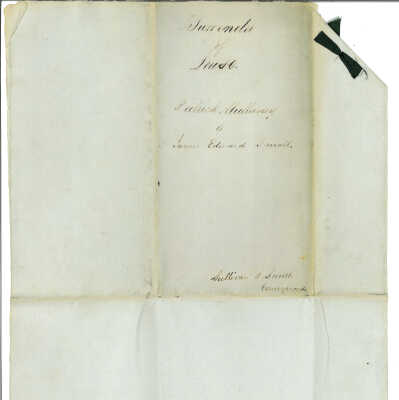 Surrender
of
Lease
Patrick Mullaney
to
James Edward Smith
Sullivan & Smith